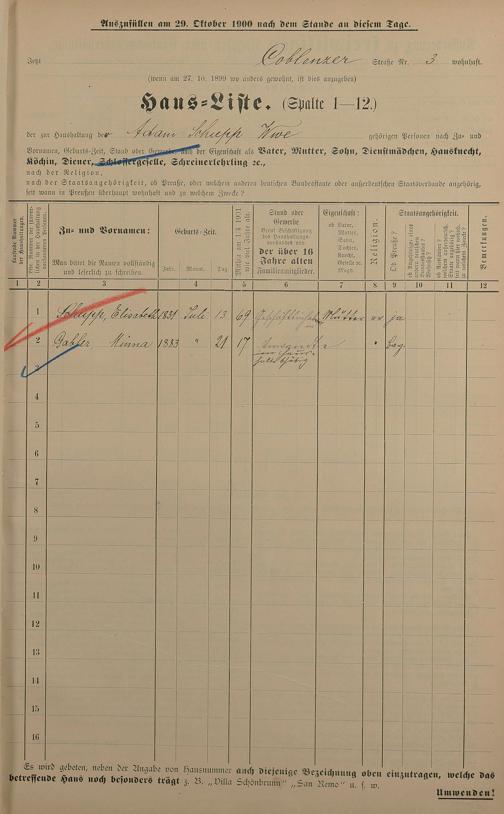 Auszufüllen am 29. Oktober 1900 nach dem Stande an diesem Tage.
Jetzt Coblenzer Straße Nr. 3 wohnhaft.
(wenn am 27. 10. 1899 wo anders gewohnt, ist dies anzugeben)
Haus-Liste. (Spalte 1—12.)
der zur Haushaltung der Adam Schupp Wwe gehörigen Personen nach Zu- und
Vornamen, Geburts-Zeit, Stand oder Gewerbe und der Eigenschaft als Vater, Mutter, Sohn, Dienstmädchen, Hausknecht,
Köchin, Diener, Schlossergeselle, Schreinerlehrling ꝛc.,
nach der Religion,
nach der Staatsangehörigkeit, ob Preuße, oder welchem anderen deutschen Bundesstaate oder außerdeutschen Staatsverbande angehörig,
seit wann in Preußen überhaupt wohnhaft und zu welchem Zwecke?
Zu- und Vornamen:
Man bittet die Namen vollständig
und leserlich zu schreiben.
Geburts-Zeit.
Jahr. Monat. Tag
Stand oder
Gewerbe
der über 16
Jahre alten
Familienmitglieder.
Eigenschaft:
ob Vater,
Mutter,
Sohn,
Tochter,
Knecht,
Geselle ꝛc.
Magd.
Religion.
Staatsangehörigkeit.
Ob Preuße?
Bemerkungen.
1 2 3 4 5 6 7 8 9 10 11 12
1 Schupp, Elisabeth 1831 Juli 13 69 Mutter ev ja
2 Gabler Minna 1883 " 21 17 " bay.
3
4
5
6
7
8
9
10
11
12
13
14
15
16
Es wird gebeten, neben der Angabe von Hausnummer auch diejenige Bezeichnung oben einzutragen, welche das
betreffende Haus noch besonders trägt z. B. „Villa Schönbrunn" „San Remo" u. s. w.
Umwenden!